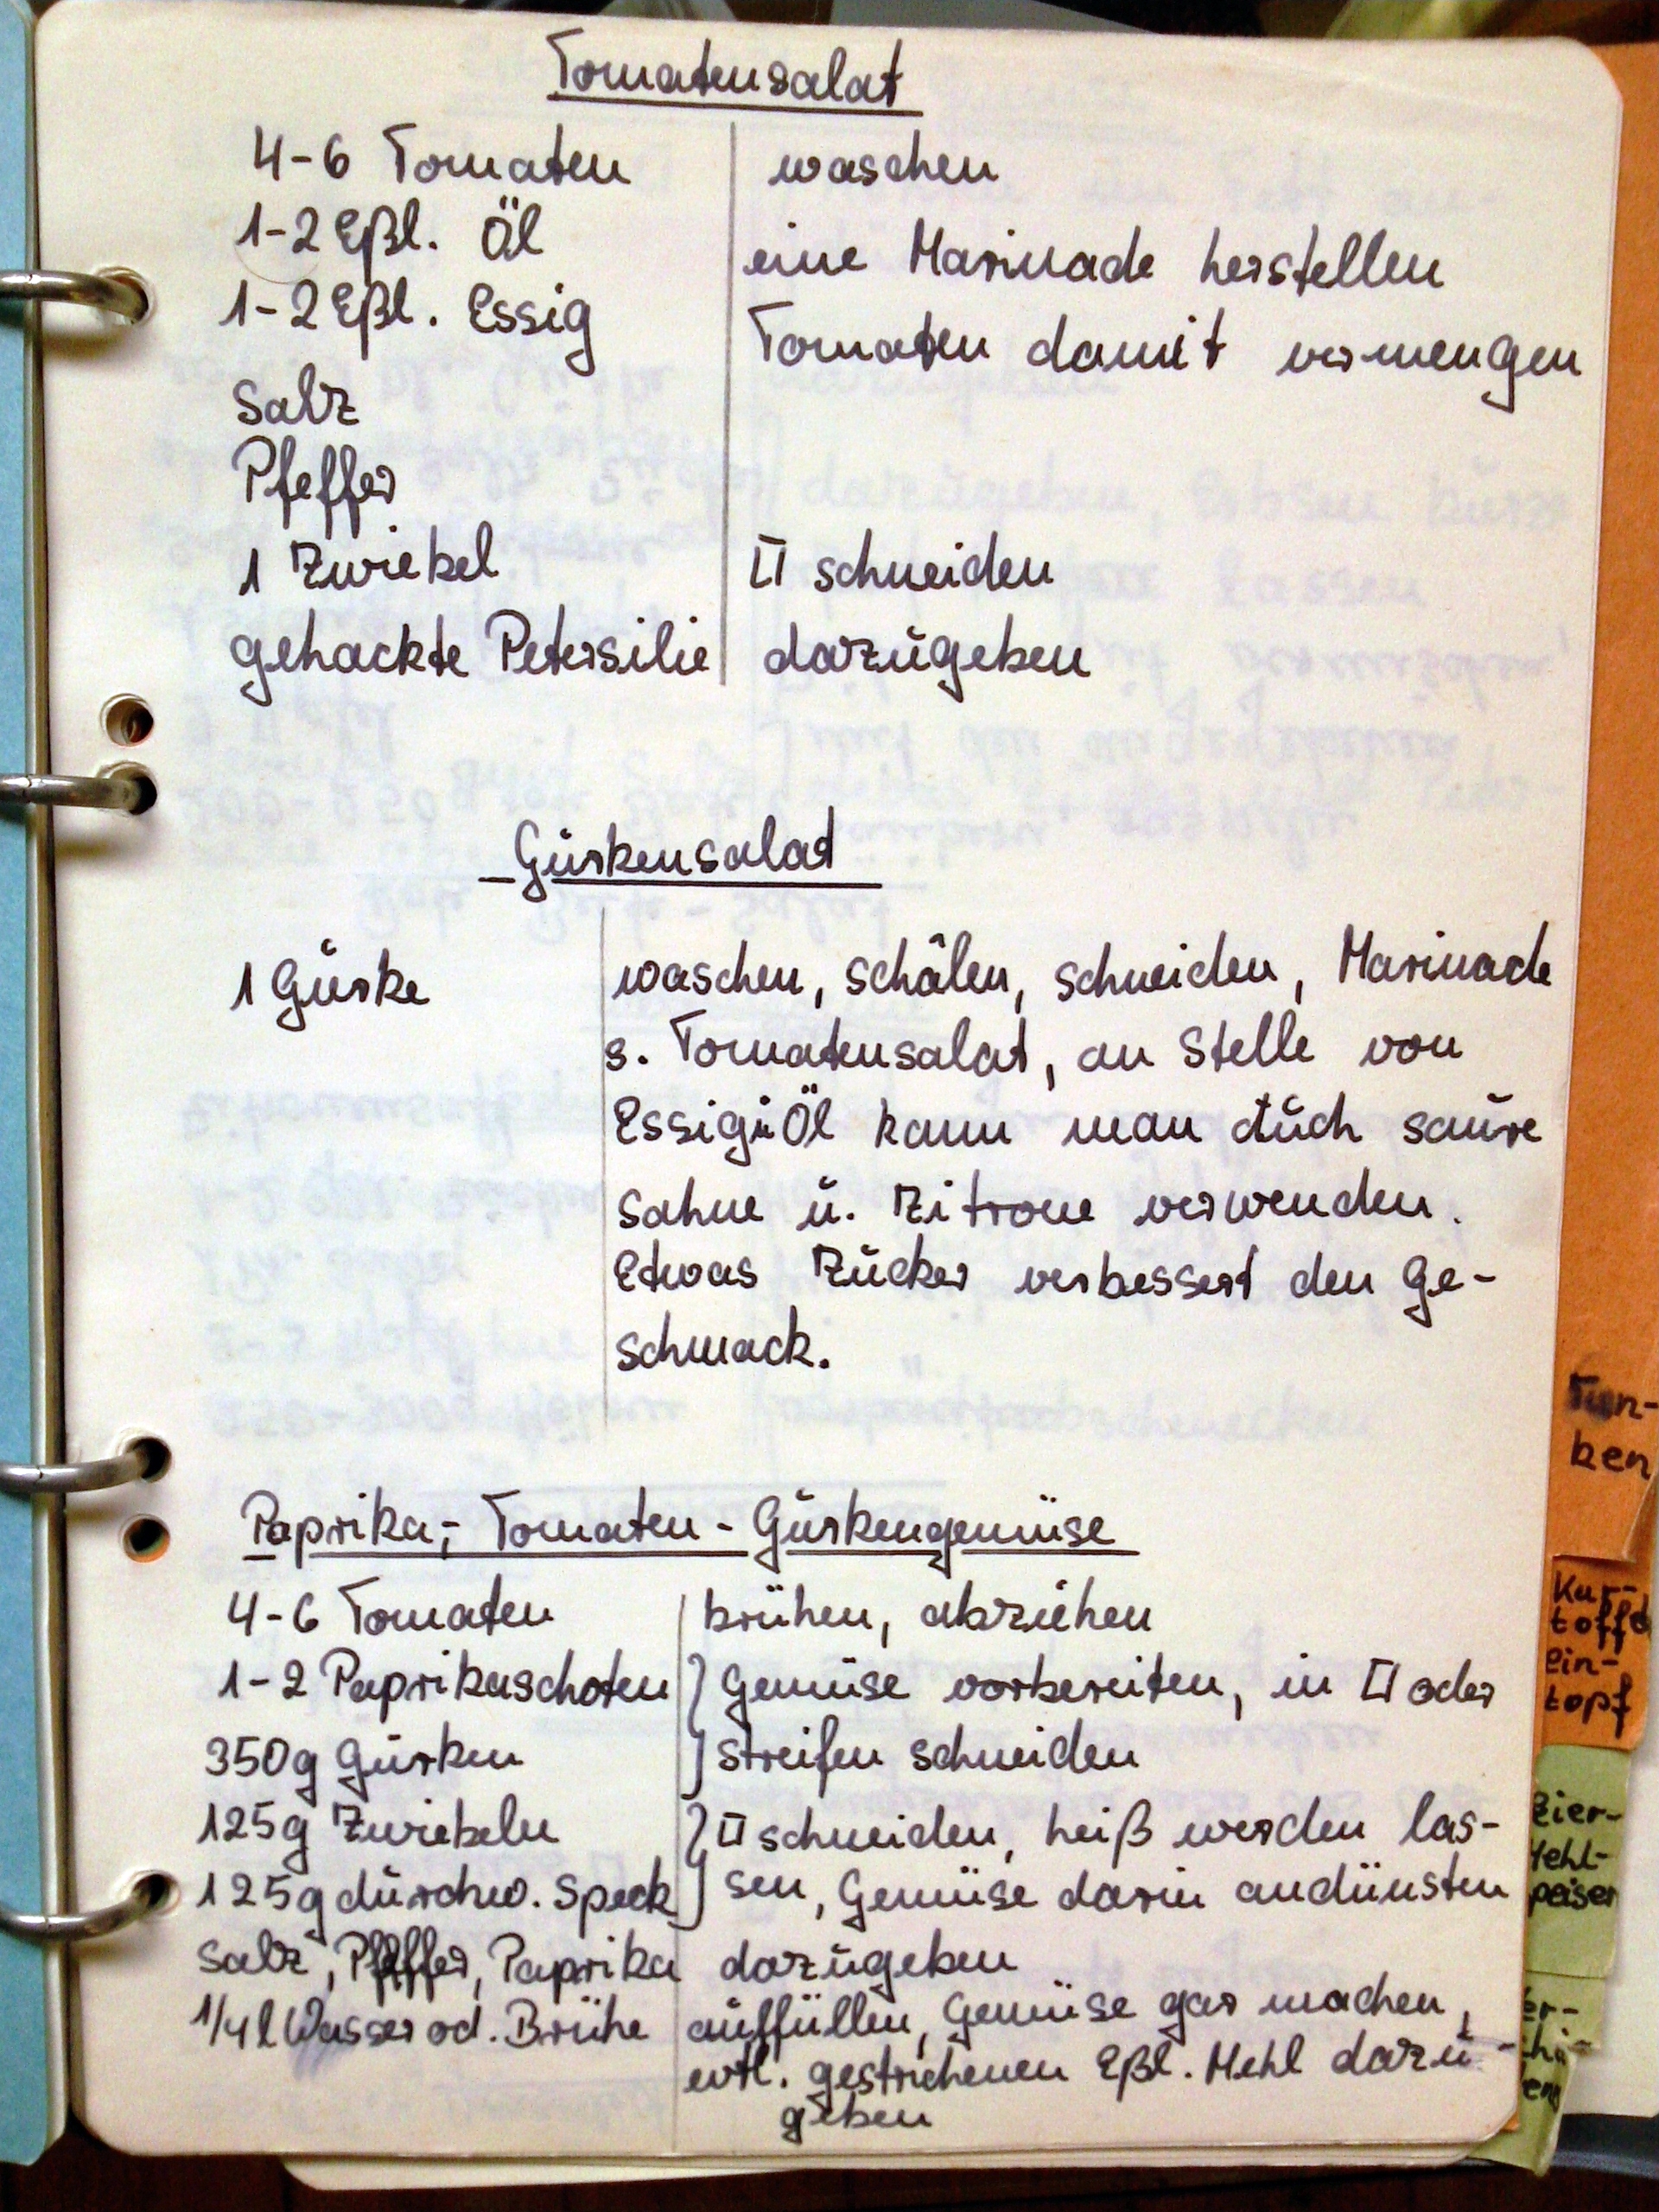 Tomatensalat
4-6 Tomaten waschen
1-2 Eßl. Öl eine Marinade herstellen
1-2 Eßl. Essig Tomaten damit vermengen
Salz
Pfeffer
1 Zwiebel □ schneiden
gehackte Petersilie dazugeben
Gurkensalat
1 Gurke waschen, schälen, schneiden, Marinade
s. Tomatensalat, an Stelle von
Essig u Öl kann man auch saure
Sahne u. Zitrone verwenden.
Etwas Zucker verbessert den Ge-
schmack.
Paprika,- Tomaten - Gurkengemüse
4-6 Tomaten brühen, abziehen
1-2 Paprikaschoten Gemüse vorbereiten, in □ oder
350g Gurken Streifen schneiden
125g Zwiebeln □ schneiden, heiß werden las-
125g durchw. Speck sen, Gemüse darin andünsten
Salz, Pfeffer, Paprika dazugeben
1/4 l Wasser od. Brühe auffüllen, Gemüse gar machen,
evtl. gestrichenen Eßl. Mehl dazu-
geben
Tun-
ken
Kar-
toffel
Ein-
topf
Eier-